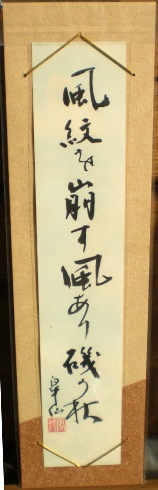 風紋を崩す風あり磯の秋